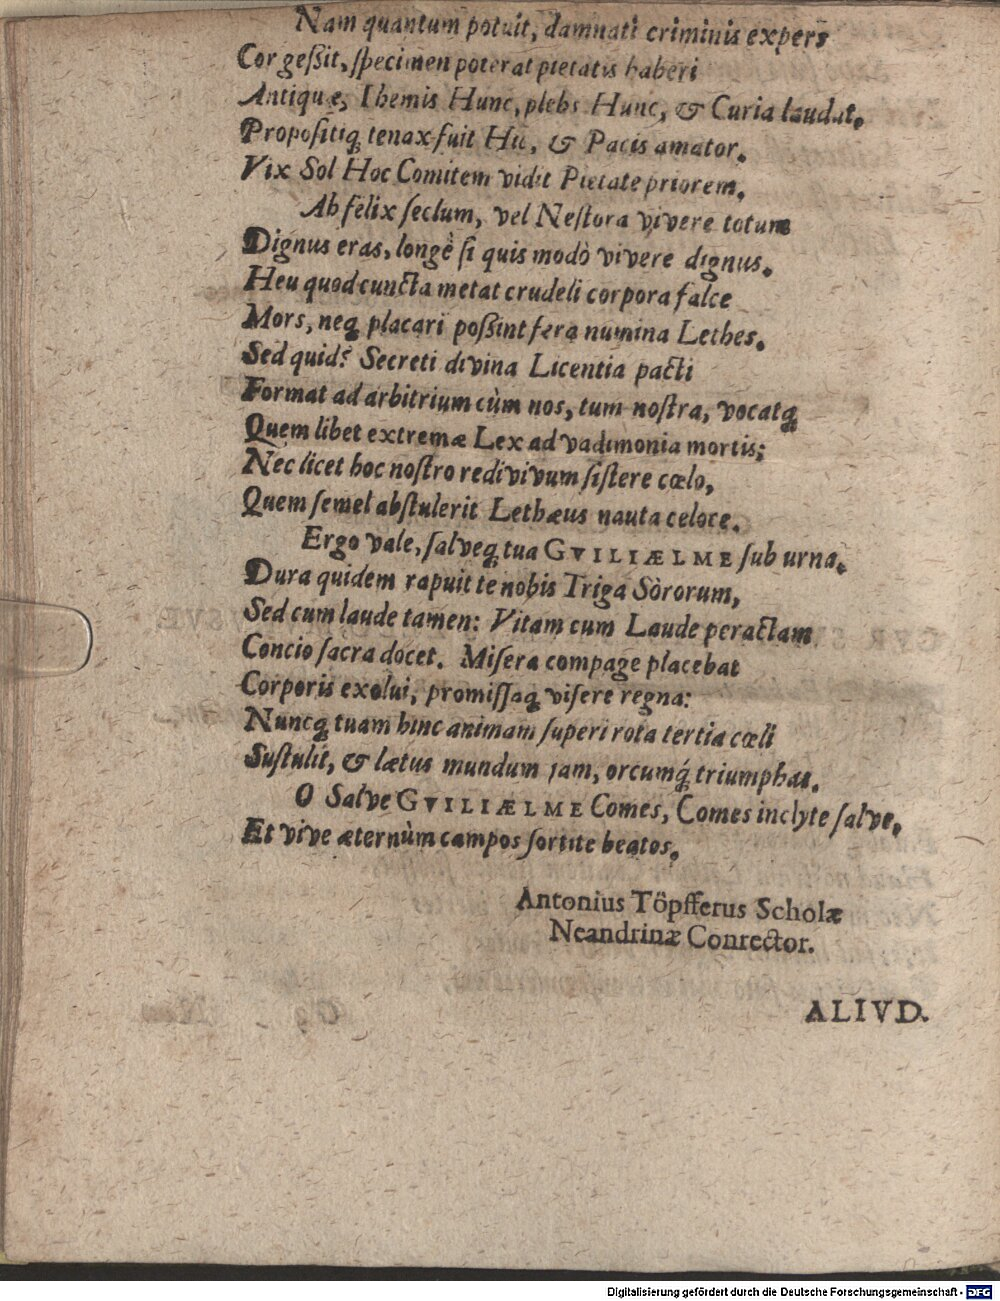 Nam quantum potuit, damnati criminis expers
Cor geſsit, ſpecimen poterat pietatis haberi
Antiquæ, Themis Hunc, plebs Hunc, & Curia laudat.
Propoſitiq; tenax fuit Hic, & Pacis amator.
Vix Sol Hoc Comitem vidit Pietate priorem.
Ah felix ſeclum, vel Neſtora vivere totum
Dignus eras, longè ſi quis modò vivere dignus.
Heu quod cuncta metat crudeli corpora falce
Mors, neq; placari poſsint fera numina Lethes.
Sed quid? Secreti divina Licentia pacti
Format ad arbitrium cùm nos, tum noſtra, vocatq;
Quem libet extremæ Lex ad vadimonia mortis;
Nec licet hoc noſtro redivivum ſiſtere cœlo,
Quem ſemel abſtulerit Lethæus nauta celoce.
Ergo vale, ſalveq; tua GVILIÆLME ſub urna.
Dura quidem rapuit te nobis Triga Sòrorum,
Sed cum laude tamen: Vitam cum Laude peractam
Concio ſacra docet. Miſera compage placebat
Corporis exolui, promiſſaq; viſere regna:
Nuncq; tuam hinc animam ſuperi rota tertia cœli
Suſtulit, & lætus mundum jam, orcumq́; triumphat.
O Salve GVILIÆLME Comes, Comes inclyte ſalve,
Et vive æternùm campos ſortite beatos.
Antonius Töpfferus Scholæ
Neandrinæ Conrector.
ALIVD.
Digitalisierung gefördert durch die Deutsche Forschungsgemeinschaft - DFG